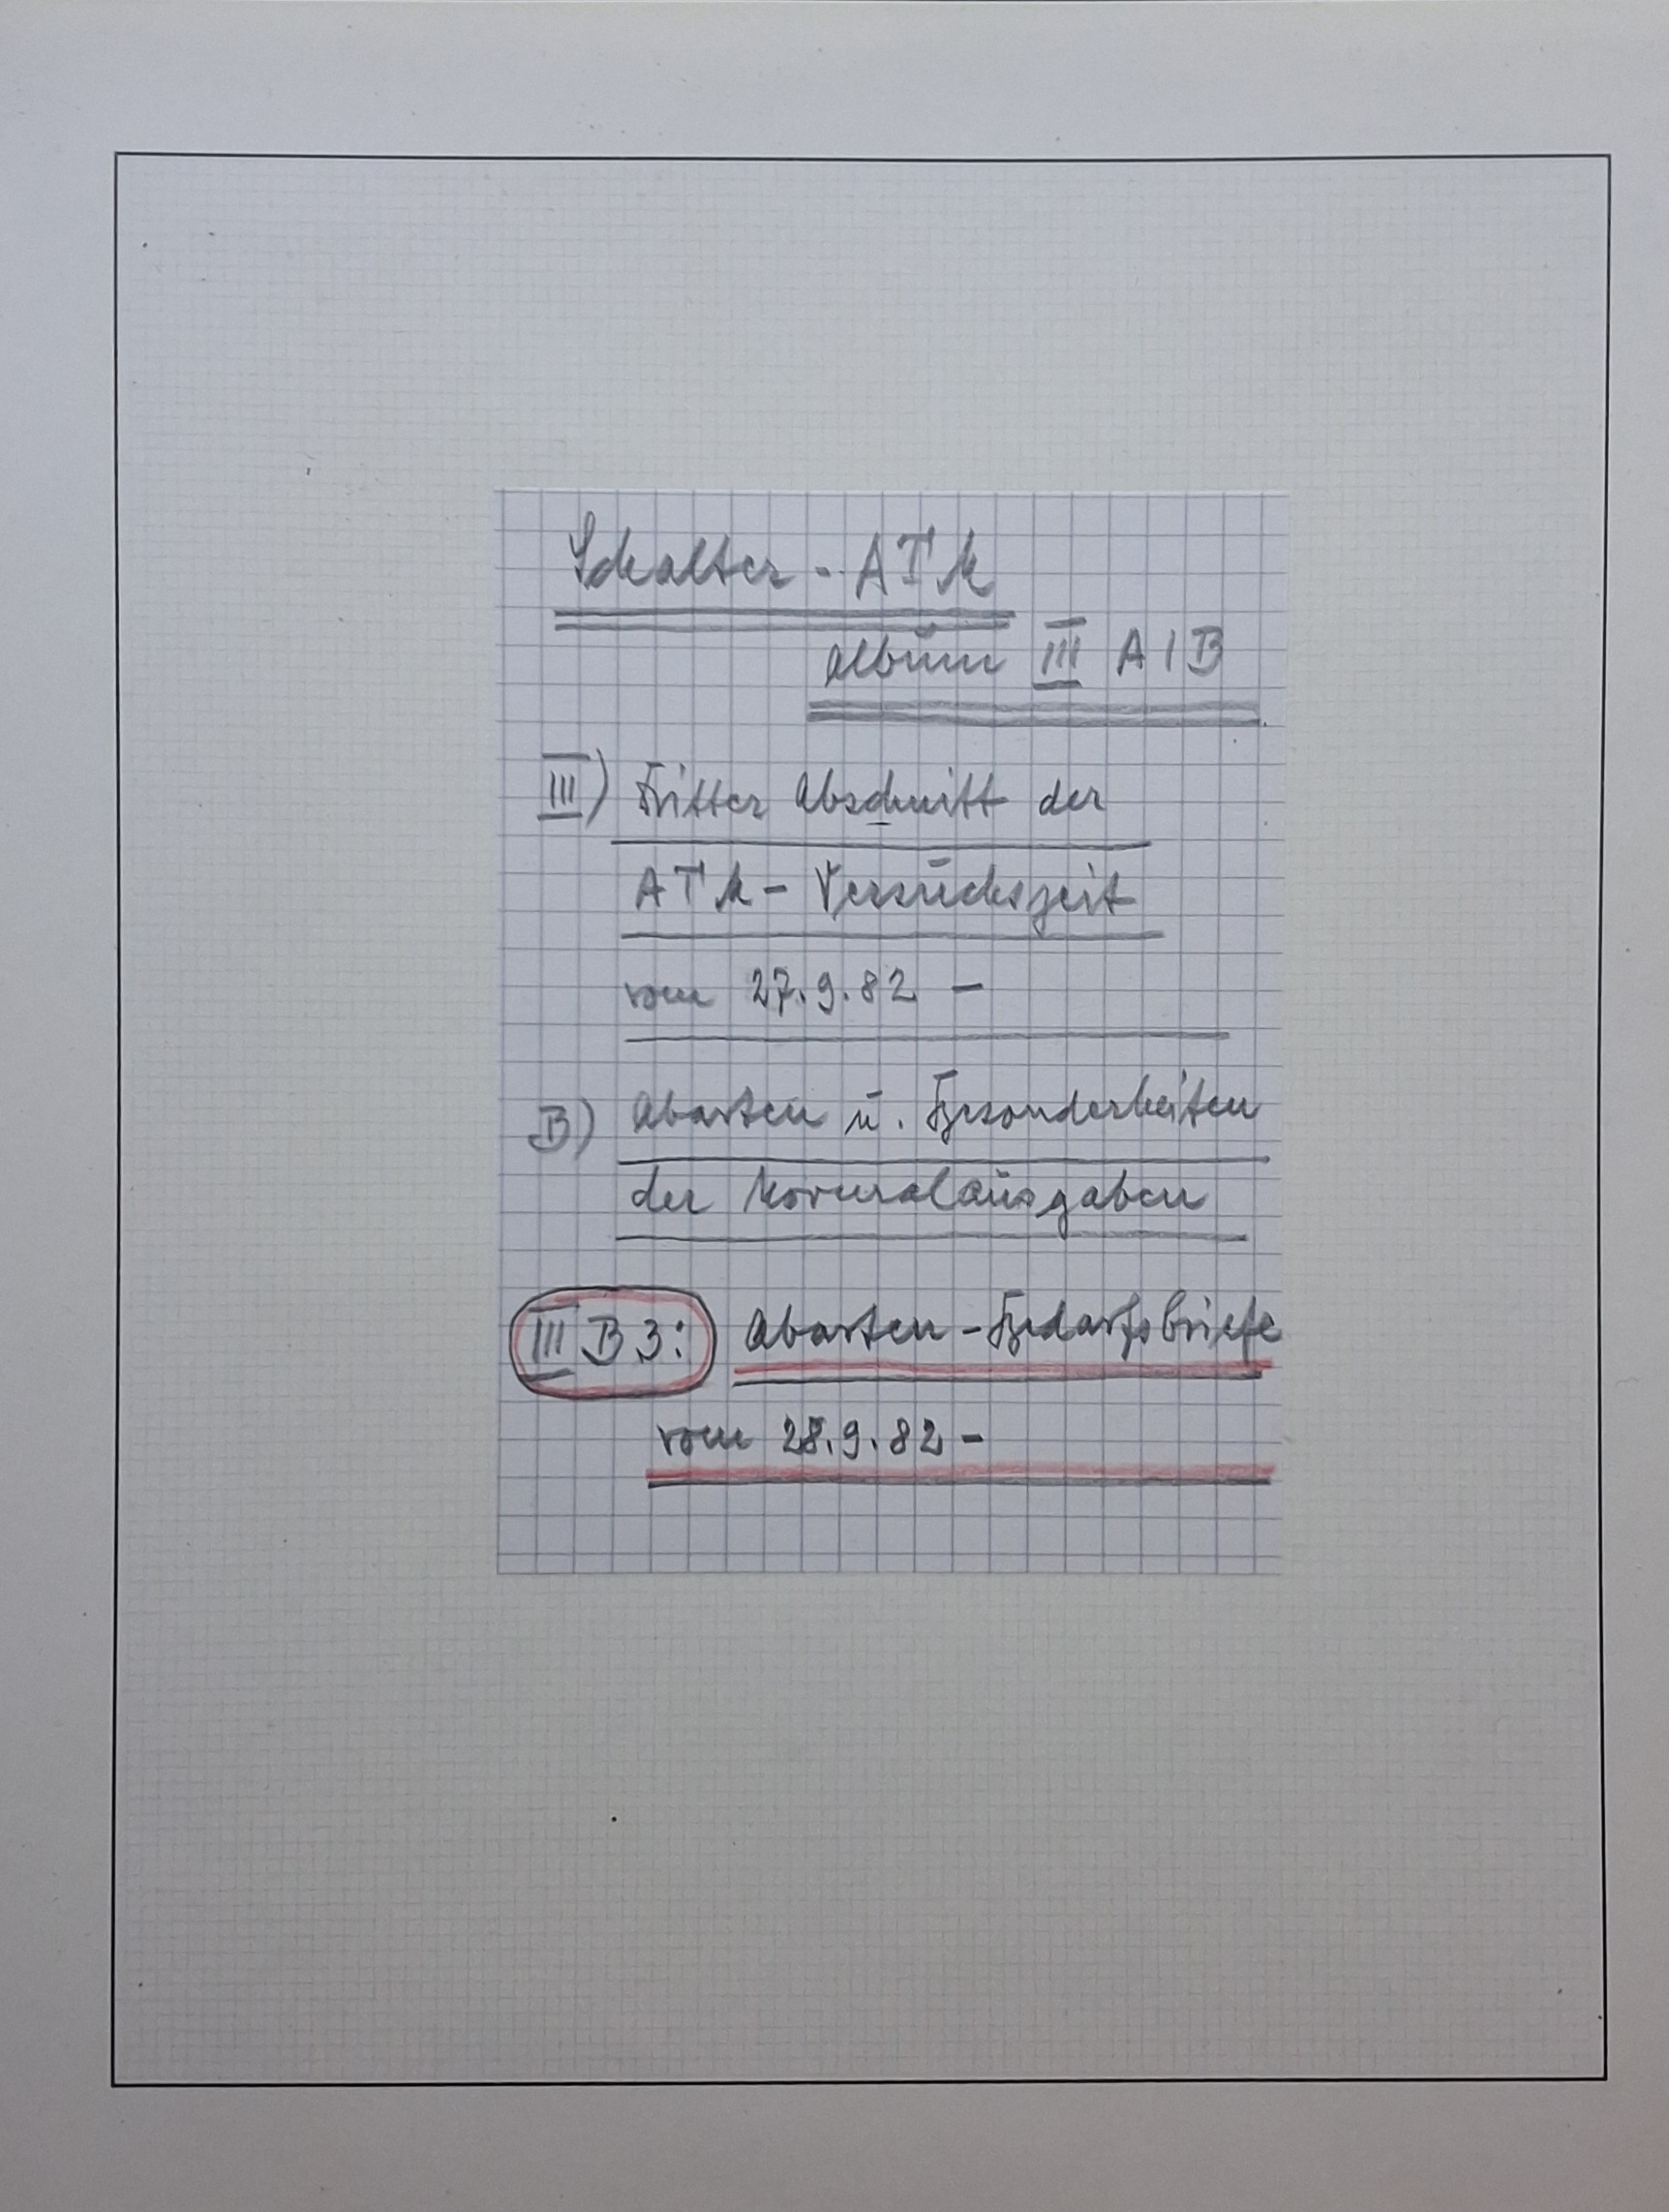 Schalter - ATM
Album III A/B
III) Dritter Abschnitt der
ATM - Versuchszeit
vom 27.9.82 –
B) Abarten u. Besonderheiten
der Normalausgaben
III B 3: Abarten - Bedarfsbriefe
vom 28.9.82 –